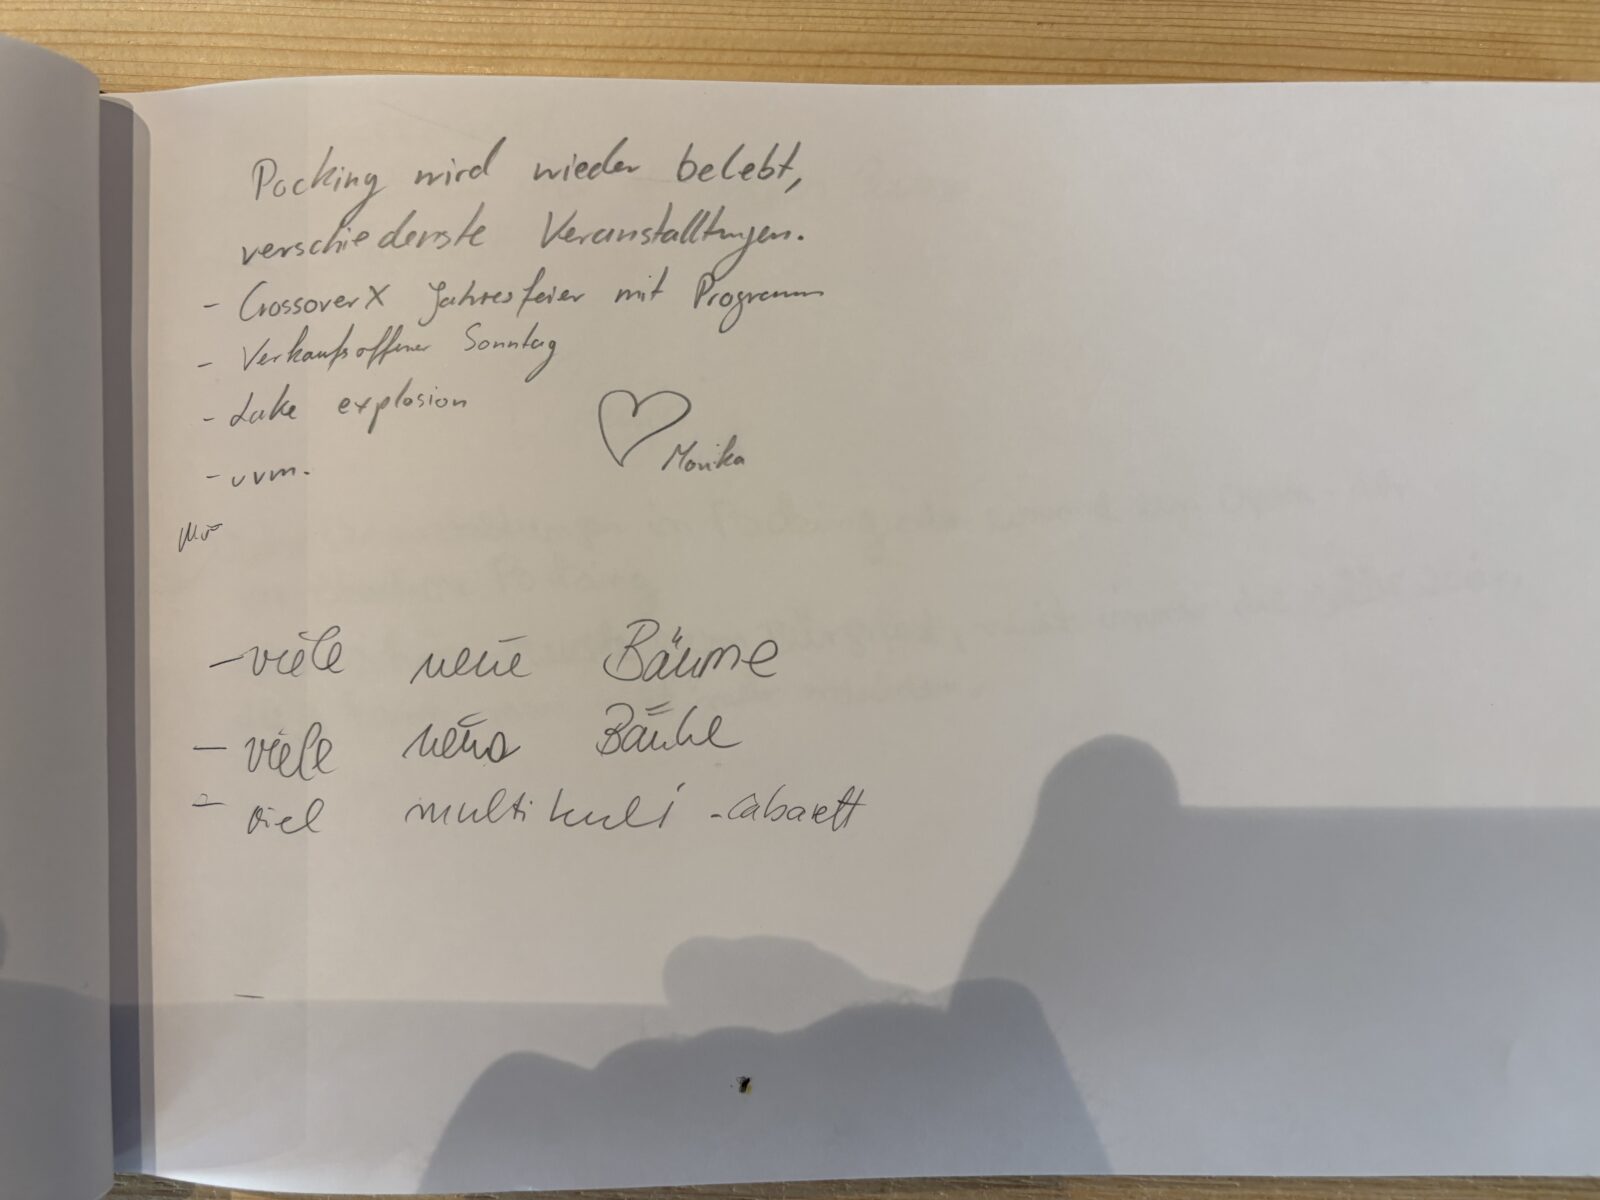 Pocking wird wieder belebt,
verschiedenste Veranstalltungen.
- CrossoverX Jahresfeier mit Programm
- Verkaufsoffener Sonntag
- Lake explosion
- uvm.
Monika
- viele neue Bäume
- viele neue Bänke
- viel multikuli - cabarett
-